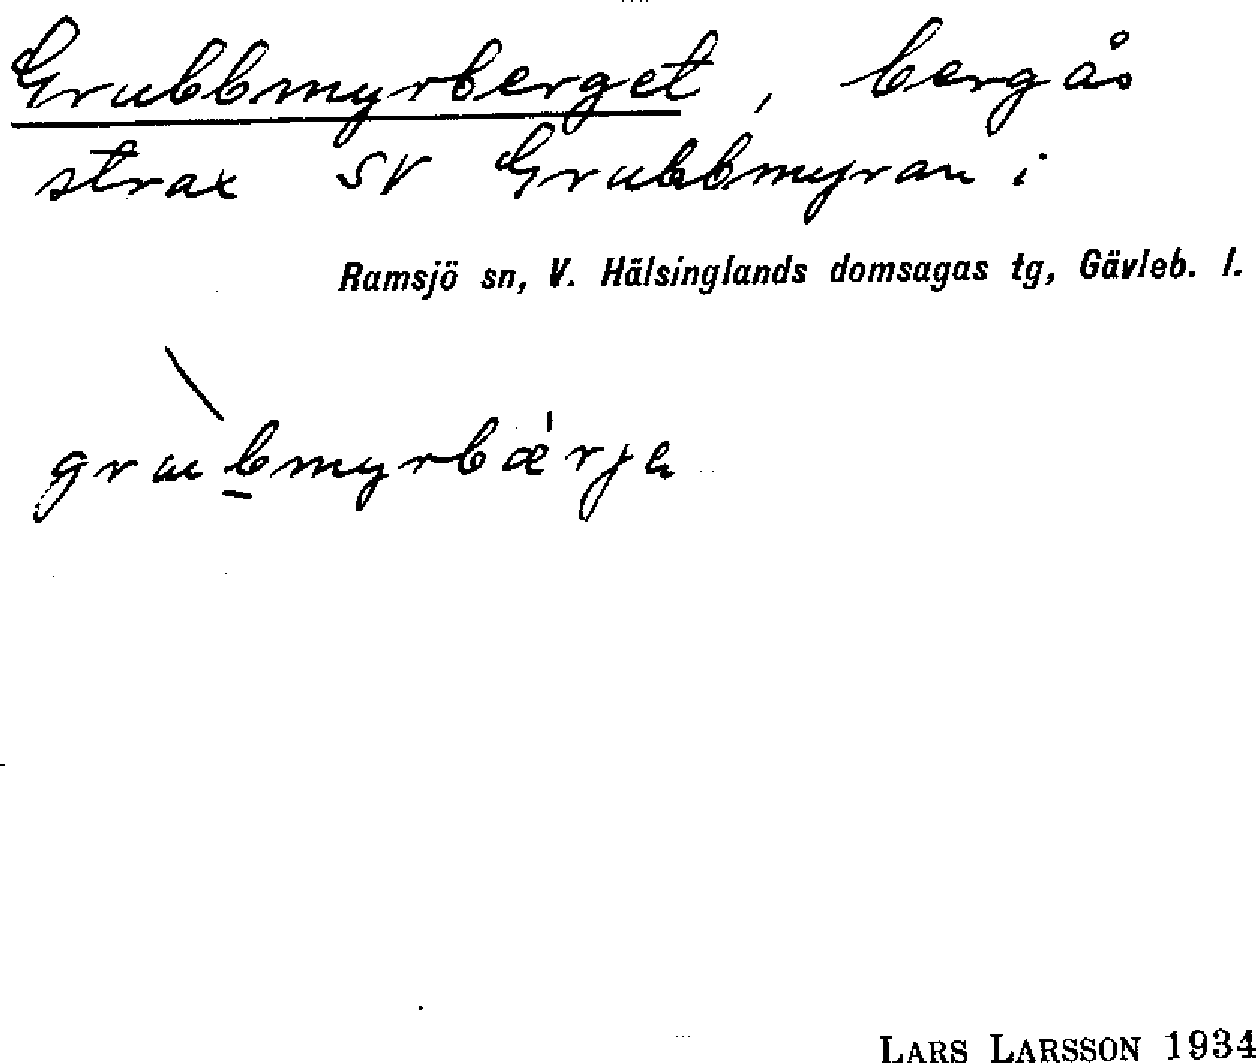 Grubbmyrberget, bergås
strax SV Grubbmyran i
Ramsjö sn, V. Hälsinglands domsagas tg, Gävleb. l.
grubmyrbærja
LARS LARSSON 1934